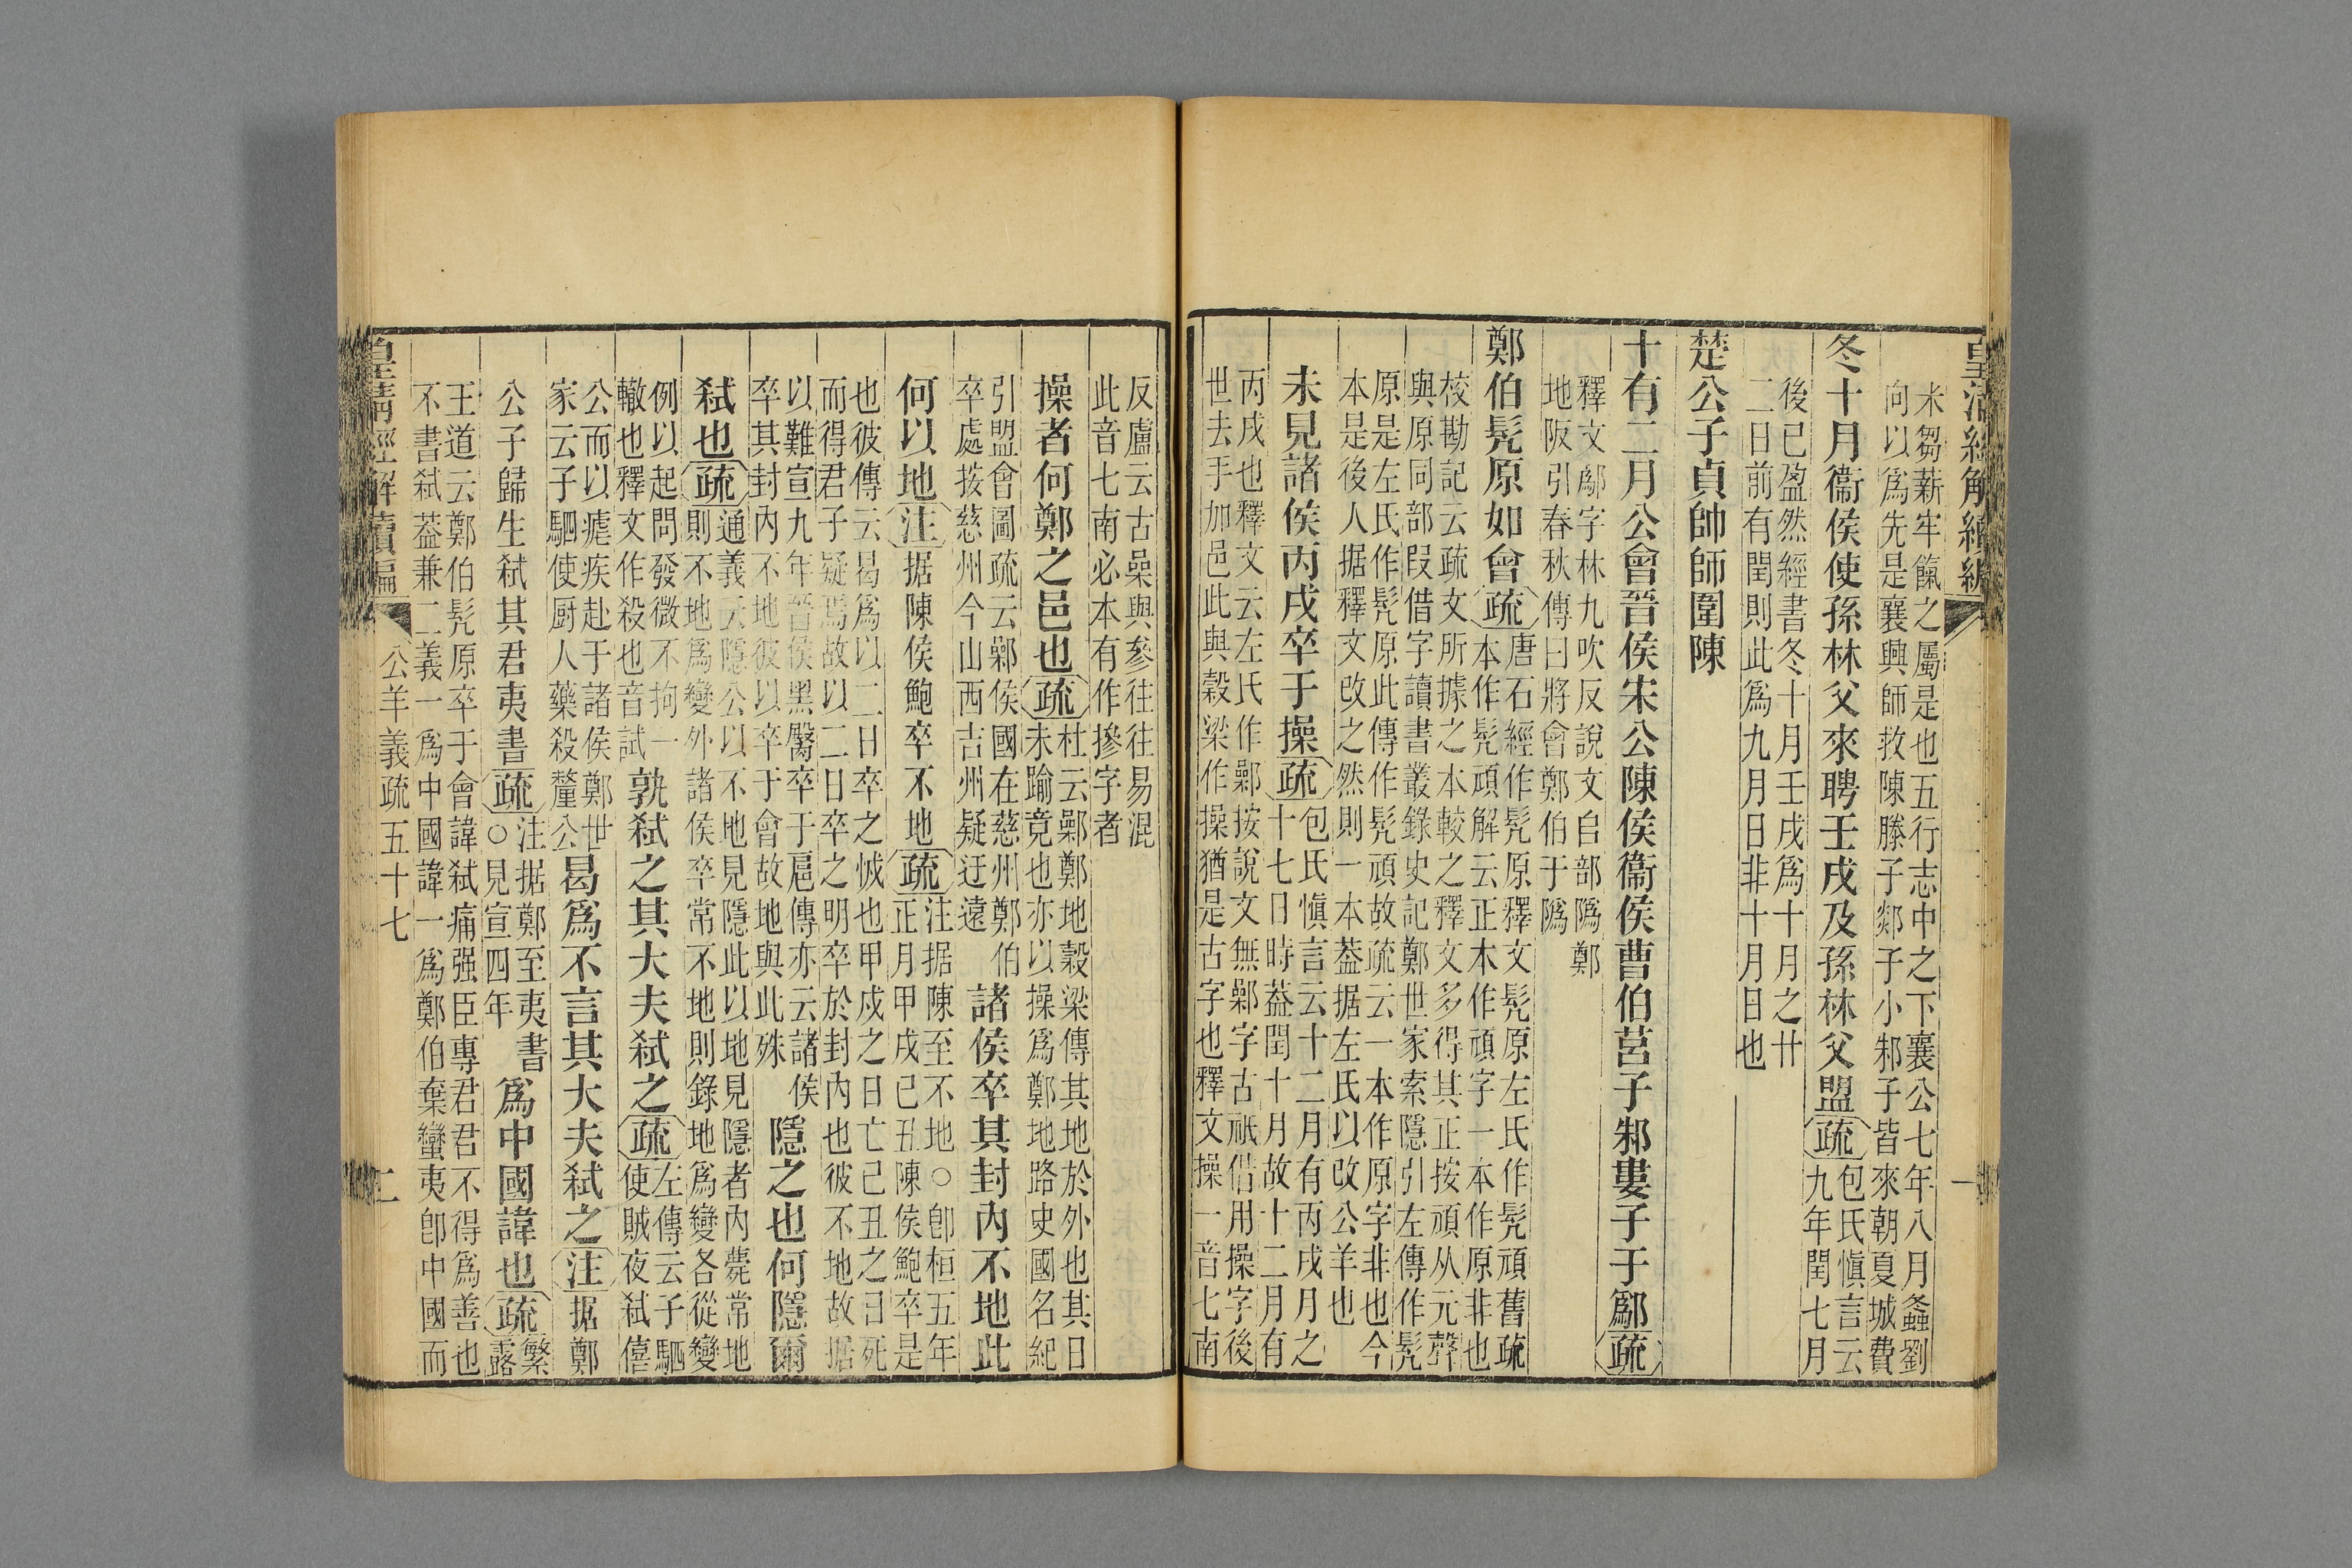 皇清經解續編
一
米芻薪牢餼之屬是也五行志中之下襄公七年八月螽劉
向以爲先是襄興師救陳滕子郯子小邾子皆來朝夏城費
冬十月衞侯使孫林父來聘壬戌及孫林父盟疏包氏愼言云
九年閏七月
後已盈然經書冬十月壬戌爲十月之廿
二日前有閏則此爲九月日非十月日也
楚公子貞帥師圍陳
十有二月公會晉侯宋公陳侯衞侯曹伯莒子邾婁子于鄬疏
釋文鄬字林九吹反說文𨸏部隝鄭
地阪引春秋傳曰將會鄭伯于隝
鄭伯髡原如會疏唐石經作髡原釋文髡原左氏作髡頑舊疏
本作髡頑解云正本作頑字一本作原非也
校勘記云疏文所據之本較之釋文多得其正按頑从元聲
與原同部叚借字讀書叢錄史記鄭世家索隱引左傳作髡
原是左氏作髡原此傳作髡頑故疏云一本作原字非也今
本是後人据釋文改之然則一本葢据左氏以改公羊也
未見諸侯丙戌卒于操疏包氏愼言云十二月有丙戌月之
十七日時葢閏十月故十二月有
丙戌也釋文云左氏作鄵按說文無鄵字古祇借用操字後
世去手加邑此與穀梁作操猶是古字也釋文操一音七南
反盧云古喿與參往往易混
此音七南必本有作摻字者
操者何鄭之邑也疏杜云鄵鄭地穀梁傳其地於外也其日
未踰竟也亦以操爲鄭地路史國名紀
引盟會圖疏云鄵侯國在慈州鄭伯
卒處按慈州今山西吉州疑迂遠
諸侯卒其封內不地此
何以地注据陳侯鮑卒不地疏注据陳至不地○卽桓五年
正月甲戌己丑陳侯鮑卒是
也彼傳云曷爲以二日卒之怴也甲戌之日亡己丑之日死
而得君子疑焉故以二日卒之明卒於封內也彼不地故据
以難宣九年晉侯黑臀卒于扈傳亦云諸侯
卒其封內不地彼以卒于會故地與此殊
隱之也何隱爾
弑也疏通義云隱公以不地見隱此以地見隱者內薨常地
則不地爲變外諸侯卒常不地則錄地爲變各從變
例以起問發微不拘一
轍也釋文作殺也音試
孰弑之其大夫弑之疏左傳云子駟
使賊夜弑僖
公而以瘧疾赴于諸侯鄭世
家云子駟使厨人藥殺釐公
曷爲不言其大夫弑之注据鄭
公子歸生弑其君夷書疏注据鄭至夷書
○見宣四年
爲中國諱也疏繁
露
王道云鄭伯髡原卒于會諱弑痛强臣專君君不得爲善也
不書弑葢兼二義一爲中國諱一爲鄭伯棄蠻夷卽中國而
皇清經解續編
公羊義疏五十七
二